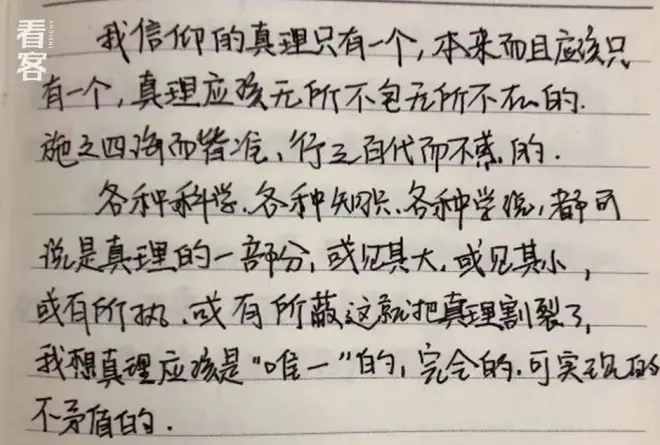 看客
INSIGHT
我信仰的真理只有一个,本来而且应该只
有一个,真理应该无所不包无所不在的.
施之四海而皆准、行之百代而不惑的.
各种科学.各种知识.各种学说,都可
说是真理的一部分,或见其大,或见其小,
或有所执、或有所蔽这就把真理割裂了,
我想真理应该是"唯一"的,完全的.可实现的
不矛盾的.